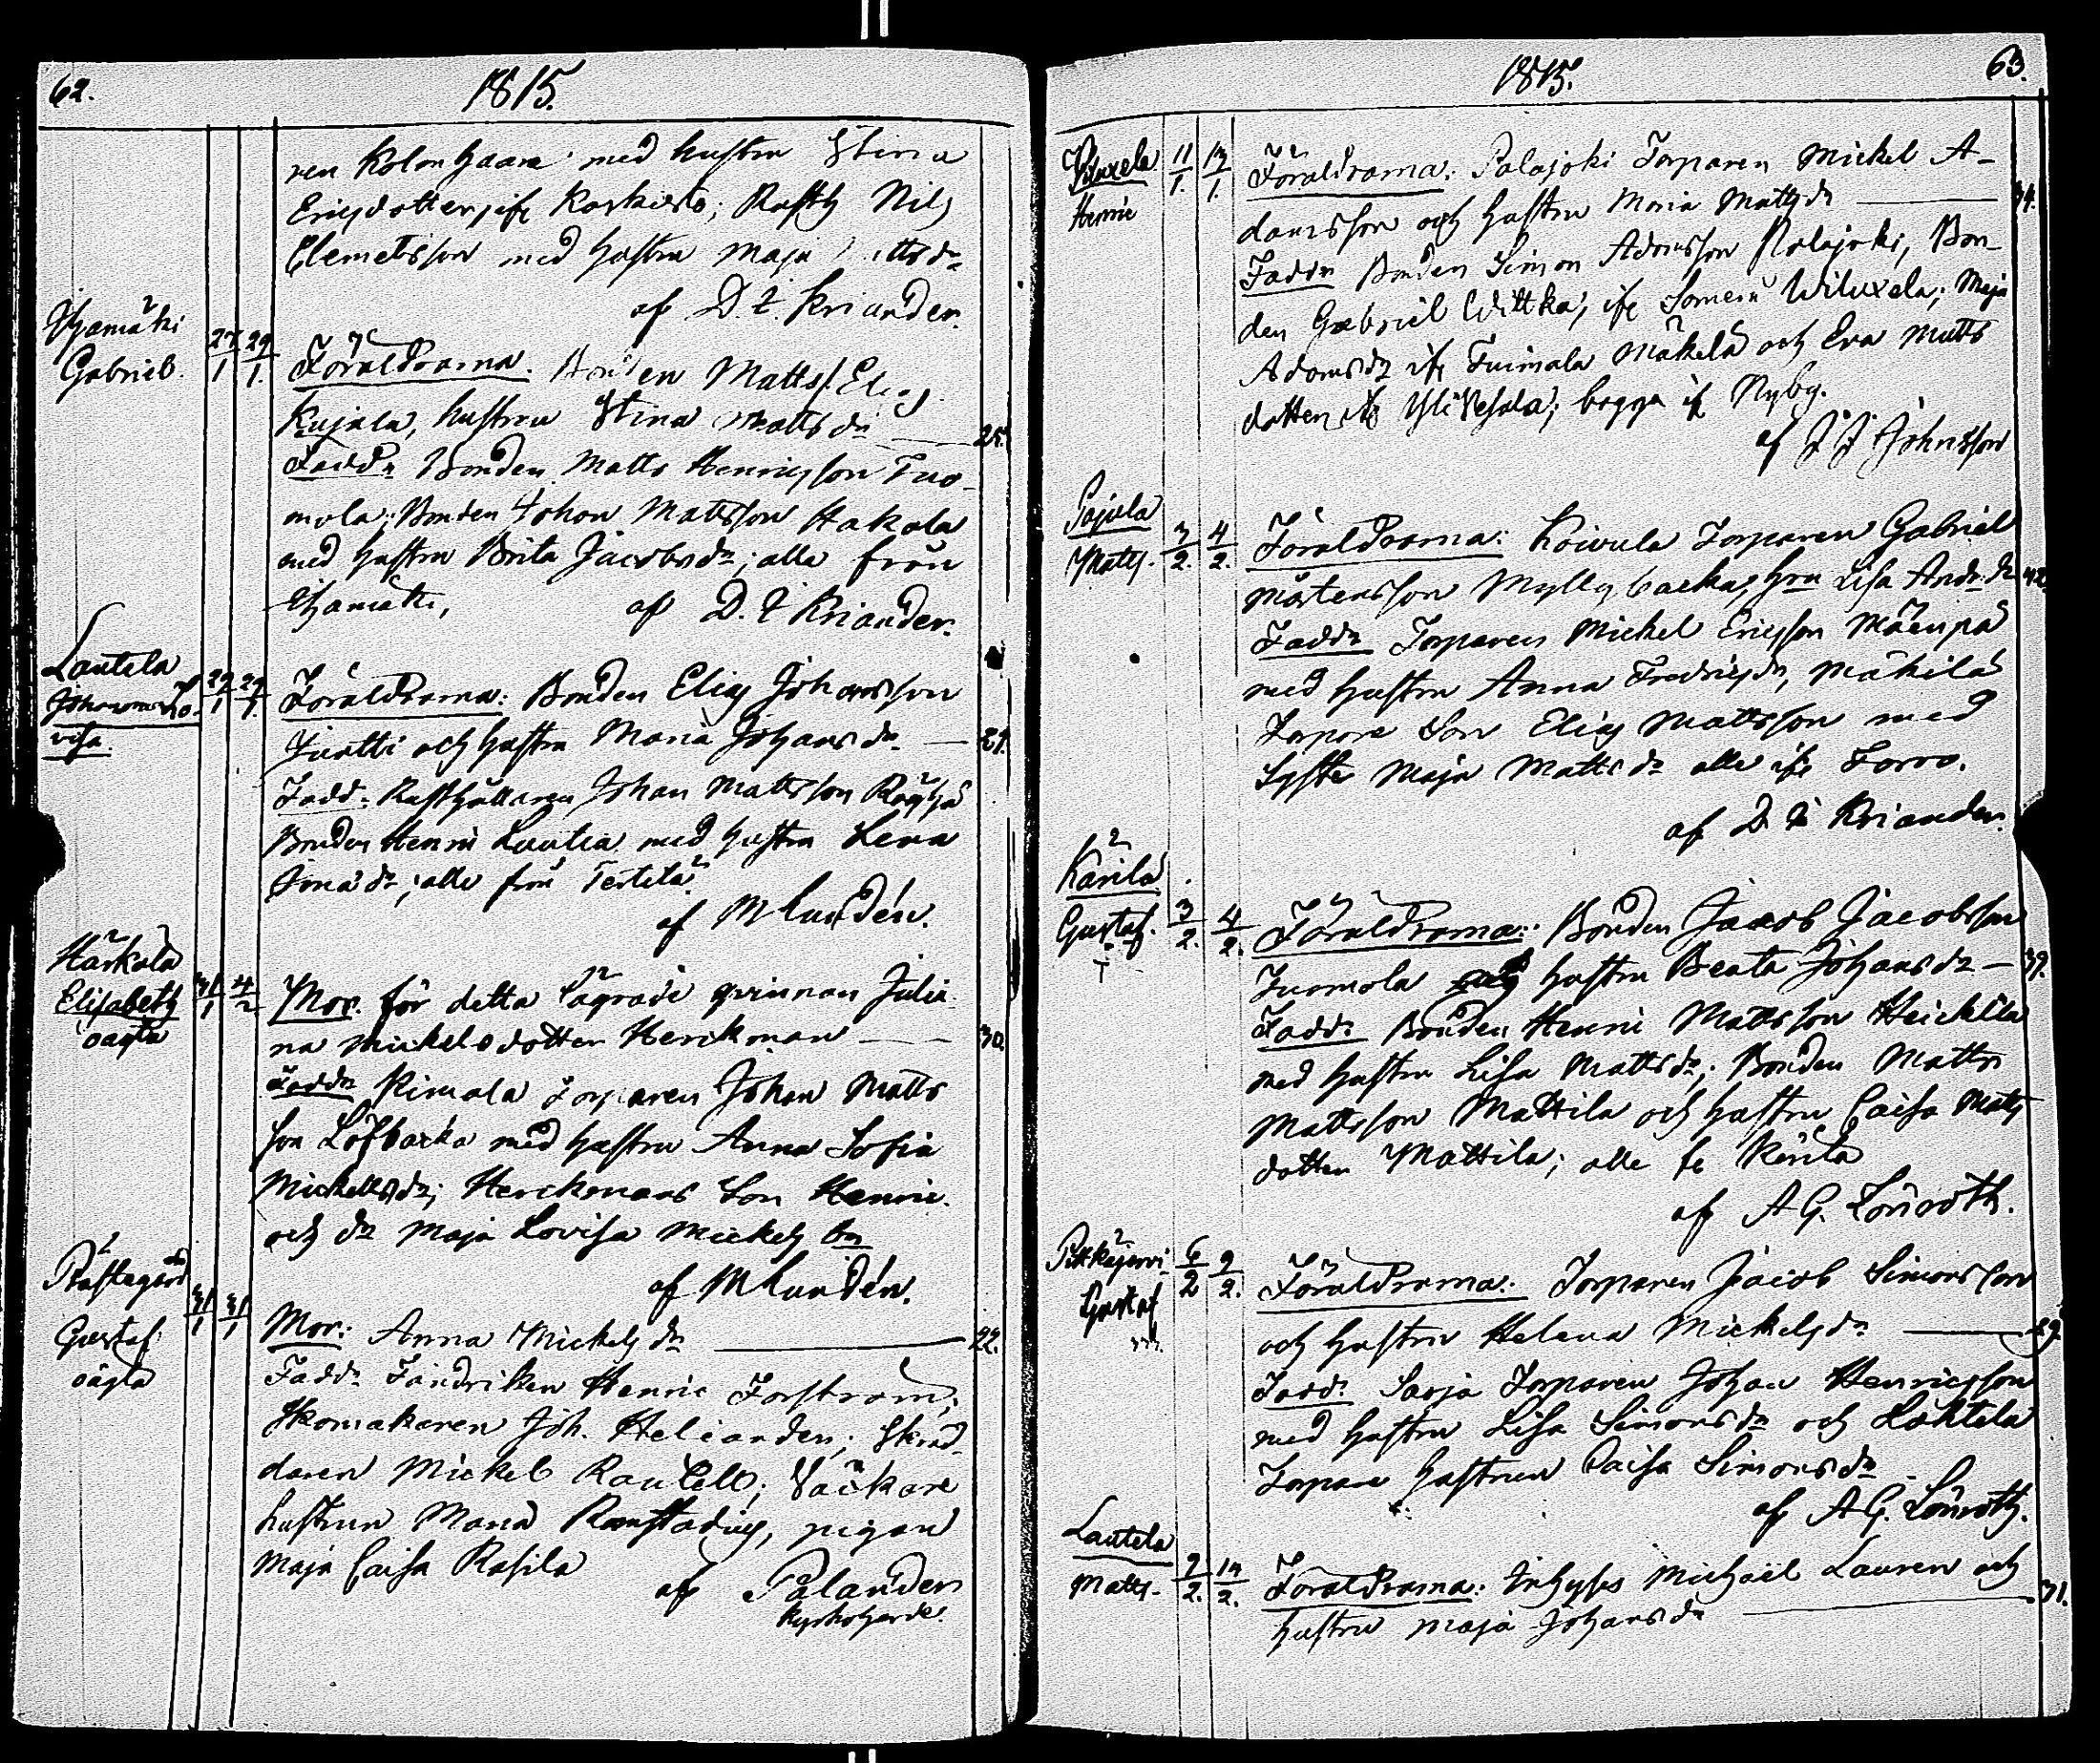 62.
1815.
ren Kolonhaara med hustru Stina
Ericsdotter, ifr Koskisto; Rusth Nils
Clemetsson med hustru Maja
af D. E. Kriander.
Hjamäki
Gabriel.
27/1 29/1.
Föräldrarna. Bonden Matts Elias
Kujala, hustrun Stina Mattsdr 25.
Faddr Bonden Matts Henricsson Tuo-
mola; Bonden Johan Mattsson Hakala
med hustru Brita Jacobsdr; alla från
Hjamäki, af D. E. Kriander.
Lautela
29/1 29/1.
Föräldrarna: Bonden Elias Johansson
och hustru Maria Johansdr 21.
Fadd: Rusthållaren Johan Mattsson
Bonden Henric Lautia med hustru Lena
dr; alle från Tertilä.
af M Lundén.
Härkälä
Elisabeth
oägta
31/1 4/2
Mor. för detta Lägrade qvinnan Julia-
na Mickelsdotter Herckman 30.
Faddr Kimala Torparen Johan Matts
son Löfbacka med hustru Anna Sofia
Mickelsdr; Herckmans Son Henric
och dr Maja Lovisa Mickels
af M Lundén.
Prästegård
Gustaf
oägta
31/1 31/1
Mor: Anna Mickelsdr 22.
Faddr Fändriken Henric Forsström;
Skomakaren Joh. Heliander; Skräd-
daren Mickel Rautell; Klockare
hustrun Maria Ramstadius, pigan
Maja Caisa Rasila
af Palander
Kyrkoherde.
1815.
63.
Viluxela
Henric
11/1. 13/1.
Föräldrarna: Palajoki Torparen Mickel A-
damsson och hustru Maria Mattsdr 34.
Faddr Bonden Simon Adamsson Palajoki, Bon-
den Gabriel Wittka, ifr Somero Wiluxela; Maja
Adamsdr ifr Tuimala Mäkelä och Eva Matts
dotter ifr Ylikesola; bägge ifr Nyby.
af J J Johnsson
Pajula
Matts.
3/2. 4/2.
Föräldrarna: Koivula Torparen Gabriel
Mårtensson Myllybacka, hru Lisa Andr. dr 42.
Faddr Torparen Mickel Ericsson Mäenpä
med hustru Anna Fredricsdr, Mäkilä
Torpare Son Elias Mattsson med
Syster Maja Mattsdr alle ifr Torro.
af D E Kriander.
Kärilä
Gustaf.
3/2. 4/2.
Föräldrarna: Bonden Jacob Jacobsson
Tuomola och hustru Beata Johansdr 39.
Faddr Bonden Henric Mattsson Heickilä
med hustru Lisa Mattsdr; Bonden Matts
Mattsson Mattila och hustru Caisa Matts
dotter Mattila; alle fr Kärilä
af A G. Lönroth.
Pitkäjervi
Gustaf
6/2 9/2.
Föräldrarna: Torparen Jacob Simonsson
och hustru Helena Mickelsdr 29.
Faddr Sarja Torparen Johan Henricsson
med hustru Lisa Simonsdr och Lahtela
Torpare hustrun Caisa Simonsdr
af A G. Lönroth.
Lautela
Matts.
9/2. 14/2.
Föräldrarna: Inhyses Michaël Lauren och
hustru Maja Johansdr 31.